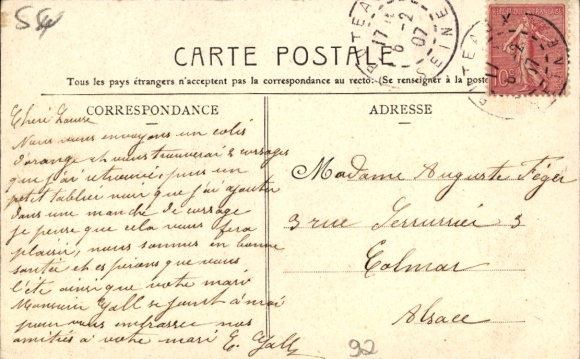 54
CARTE POSTALE
Tous les pays étrangers n'acceptent pas la correspondance au recto. (Se renseigner à la poste
CORRESPONDANCE
Nous vous envoyons un colis
d'orange et vous trouverai 2 corsages
que j'ai retrouvé, puis un
petit tablier noir que j'ai ajouter
dans une manche de corsage
je pense que cela vous fera
plaisir, nous sommes en bonne
santée et espérons que vous
l'ète ainsi que votre mari
Monsieur Gall se joint à moi
pour vous embrasser nos
amitiés à votre mari E. Gall
ADRESSE
Madame Auguste Féger
3 rue 3
Colmar
Alsace
92
17
6 -2
07
SEINE
10